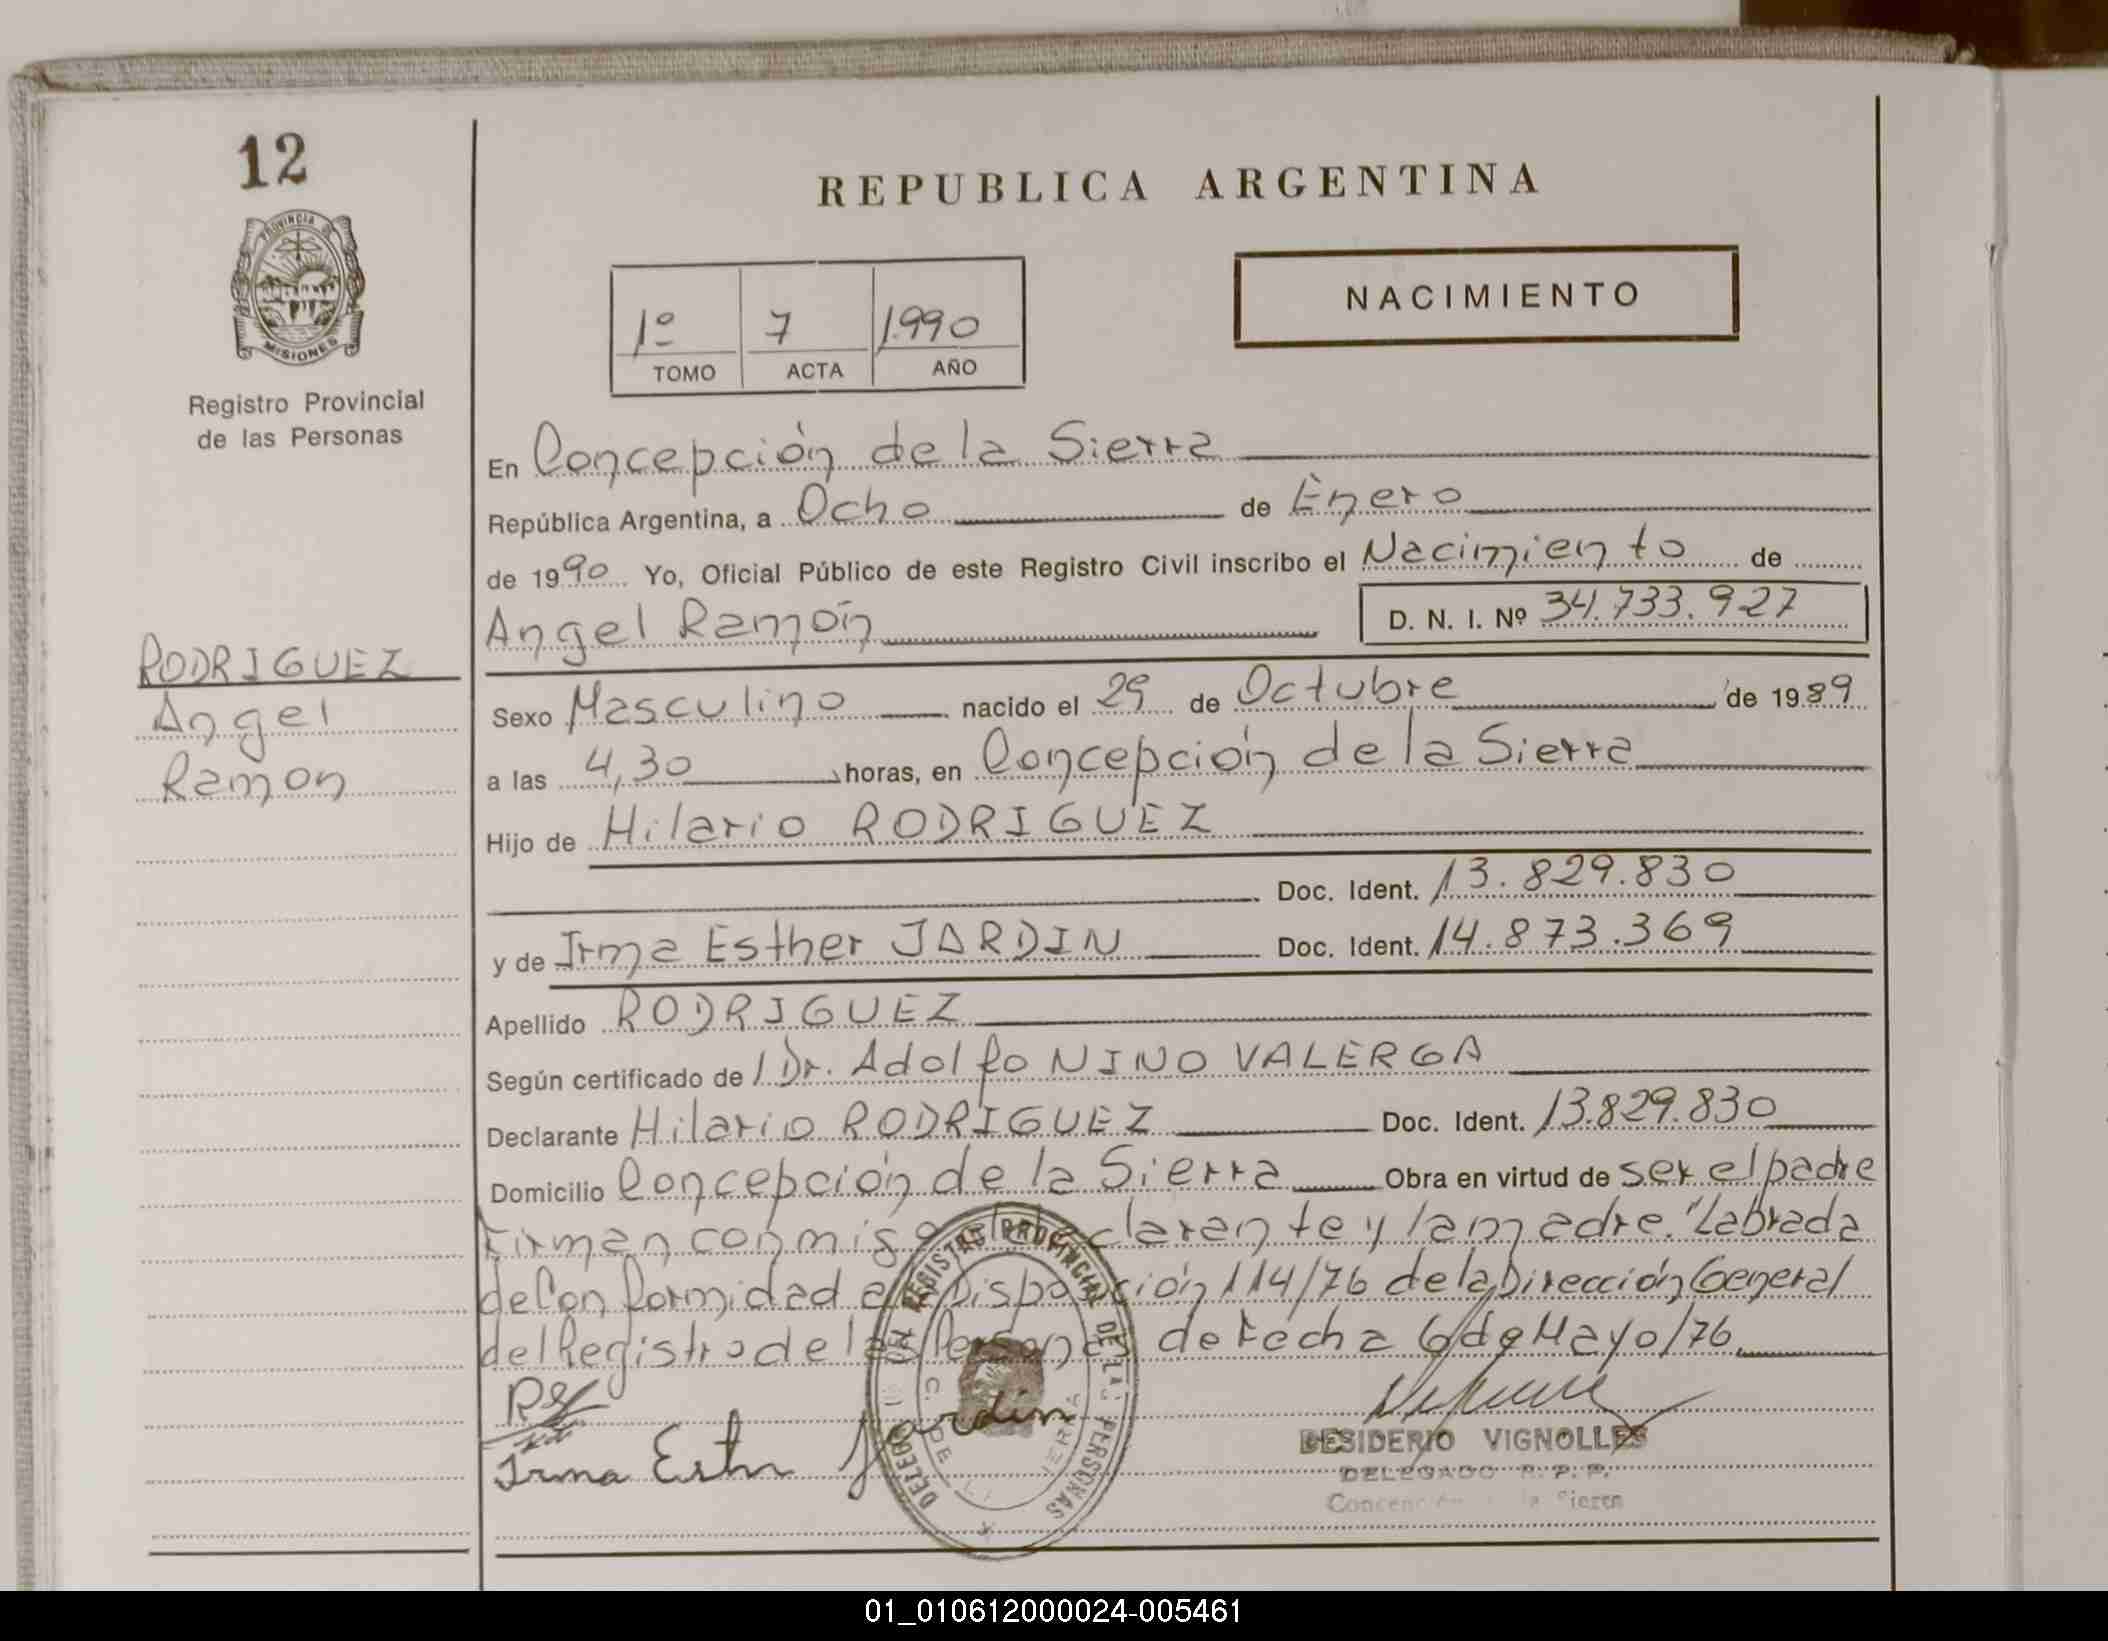 12
REPUBLICA ARGENTINA
PROVINCIA DE
MISIONES
NACIMIENTO
1º 7 1.990
TOMO ACTA AÑO
Registro Provincial
de las Personas
En Concepción de la Sierra
República Argentina, a Ocho de Enero
de 1990 Yo, Oficial Público de este Registro Civil inscribo el Nacimiento de
Angel Ramón D. N. I. Nº 34.733.927
RODRIGUEZ
Angel
Ramon
Sexo Masculino nacido el 29 de Octubre de 1989
a las 4,30 horas, en Concepción de la Sierra
Hijo de Hilario RODRIGUEZ
Doc. Ident. 13.829.830
y de Irma Esther JARDIN Doc. Ident. 14.873.369
Apellido RODRIGUEZ
Según certificado de l Dr. Adolfo NINO VALERGA
Declarante Hilario RODRIGUEZ Doc. Ident. 13.829.830
Domicilio Concepción de la Sierra Obra en virtud de ser el padre
Firman conmigo el declarante y la madre. "Labrada
de Conformidad a Disposición 114/76 de la Dirección General
del Registro de las Personas de fecha 6 de Mayo/76.
Irma Esther Jardin
DELEG DEL REGISTRO PROVINCIAL DE LAS PERSONAS
C. DE LA SIERRA
DESIDERIO VIGNOLLES
DELEGADO R. P. P.
Concepción de la Sierra
01_010612000024-005461